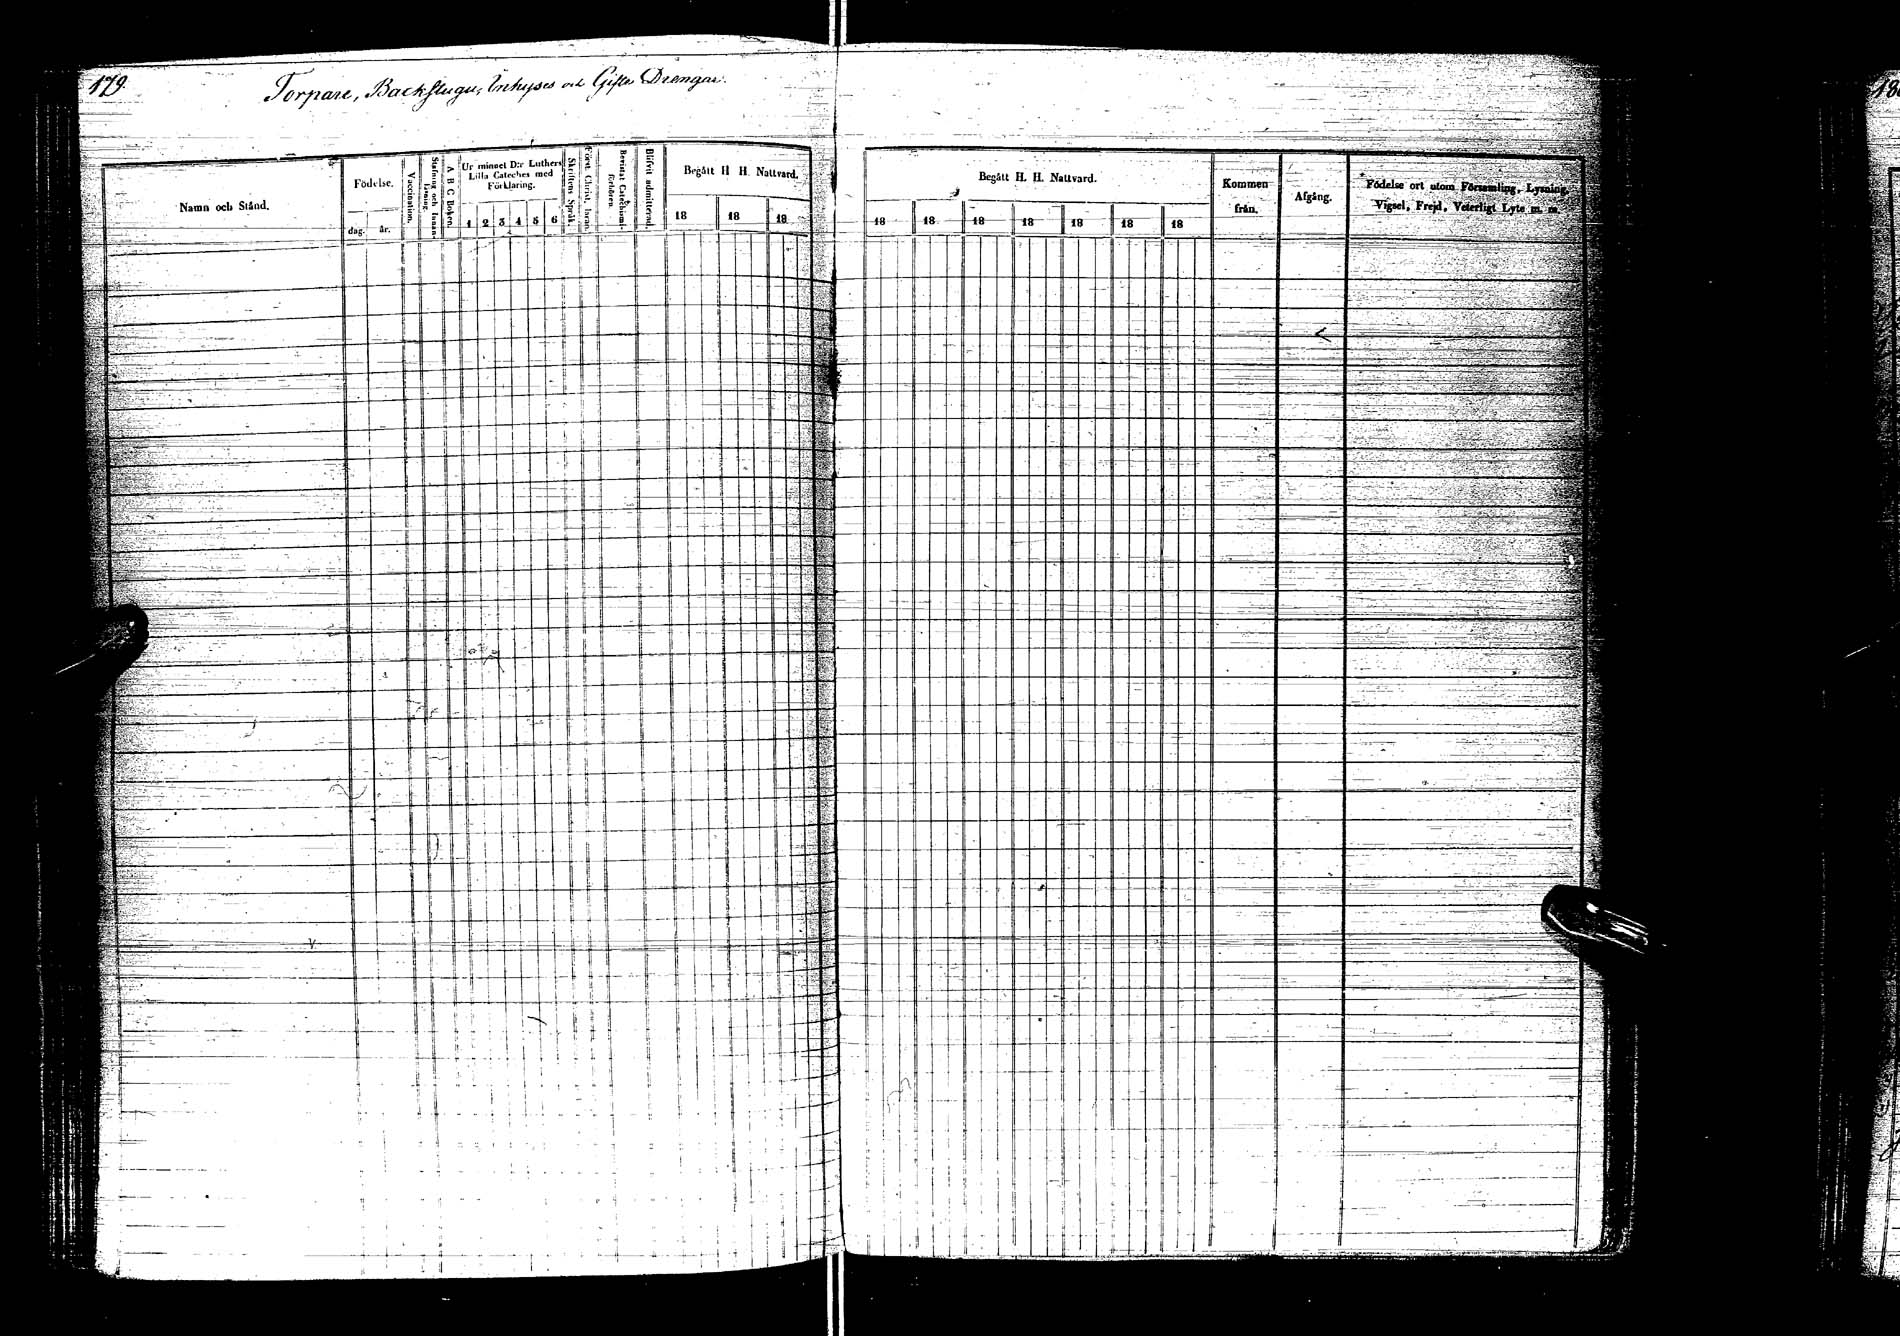 179.
Torpare, Backstugu, Inhyses och Gifta Drengar.
Namn och Stånd.
Födelse.
dag. år.
Vaccination.
Stafning och Innan-
läsning.
A B C Boken.
Ur minnet D:r Luthers
Lilla Cateches med
Förklaring.
1 2 3 4 5 6
Skriftens Språk.
Först. Christ. Insan.
Bevistat Catechismi-
förhören.
Blifvit admitterad.
Begått H H. Nattvard.
18 18 18
Begått H. H. Nattvard.
18 18 18 18 18 18 18
Kommen
från.
Afgång.
Födelse ort utom Församling, Lysning,
Vigsel, Frejd, Veterligt Lyte m. m.